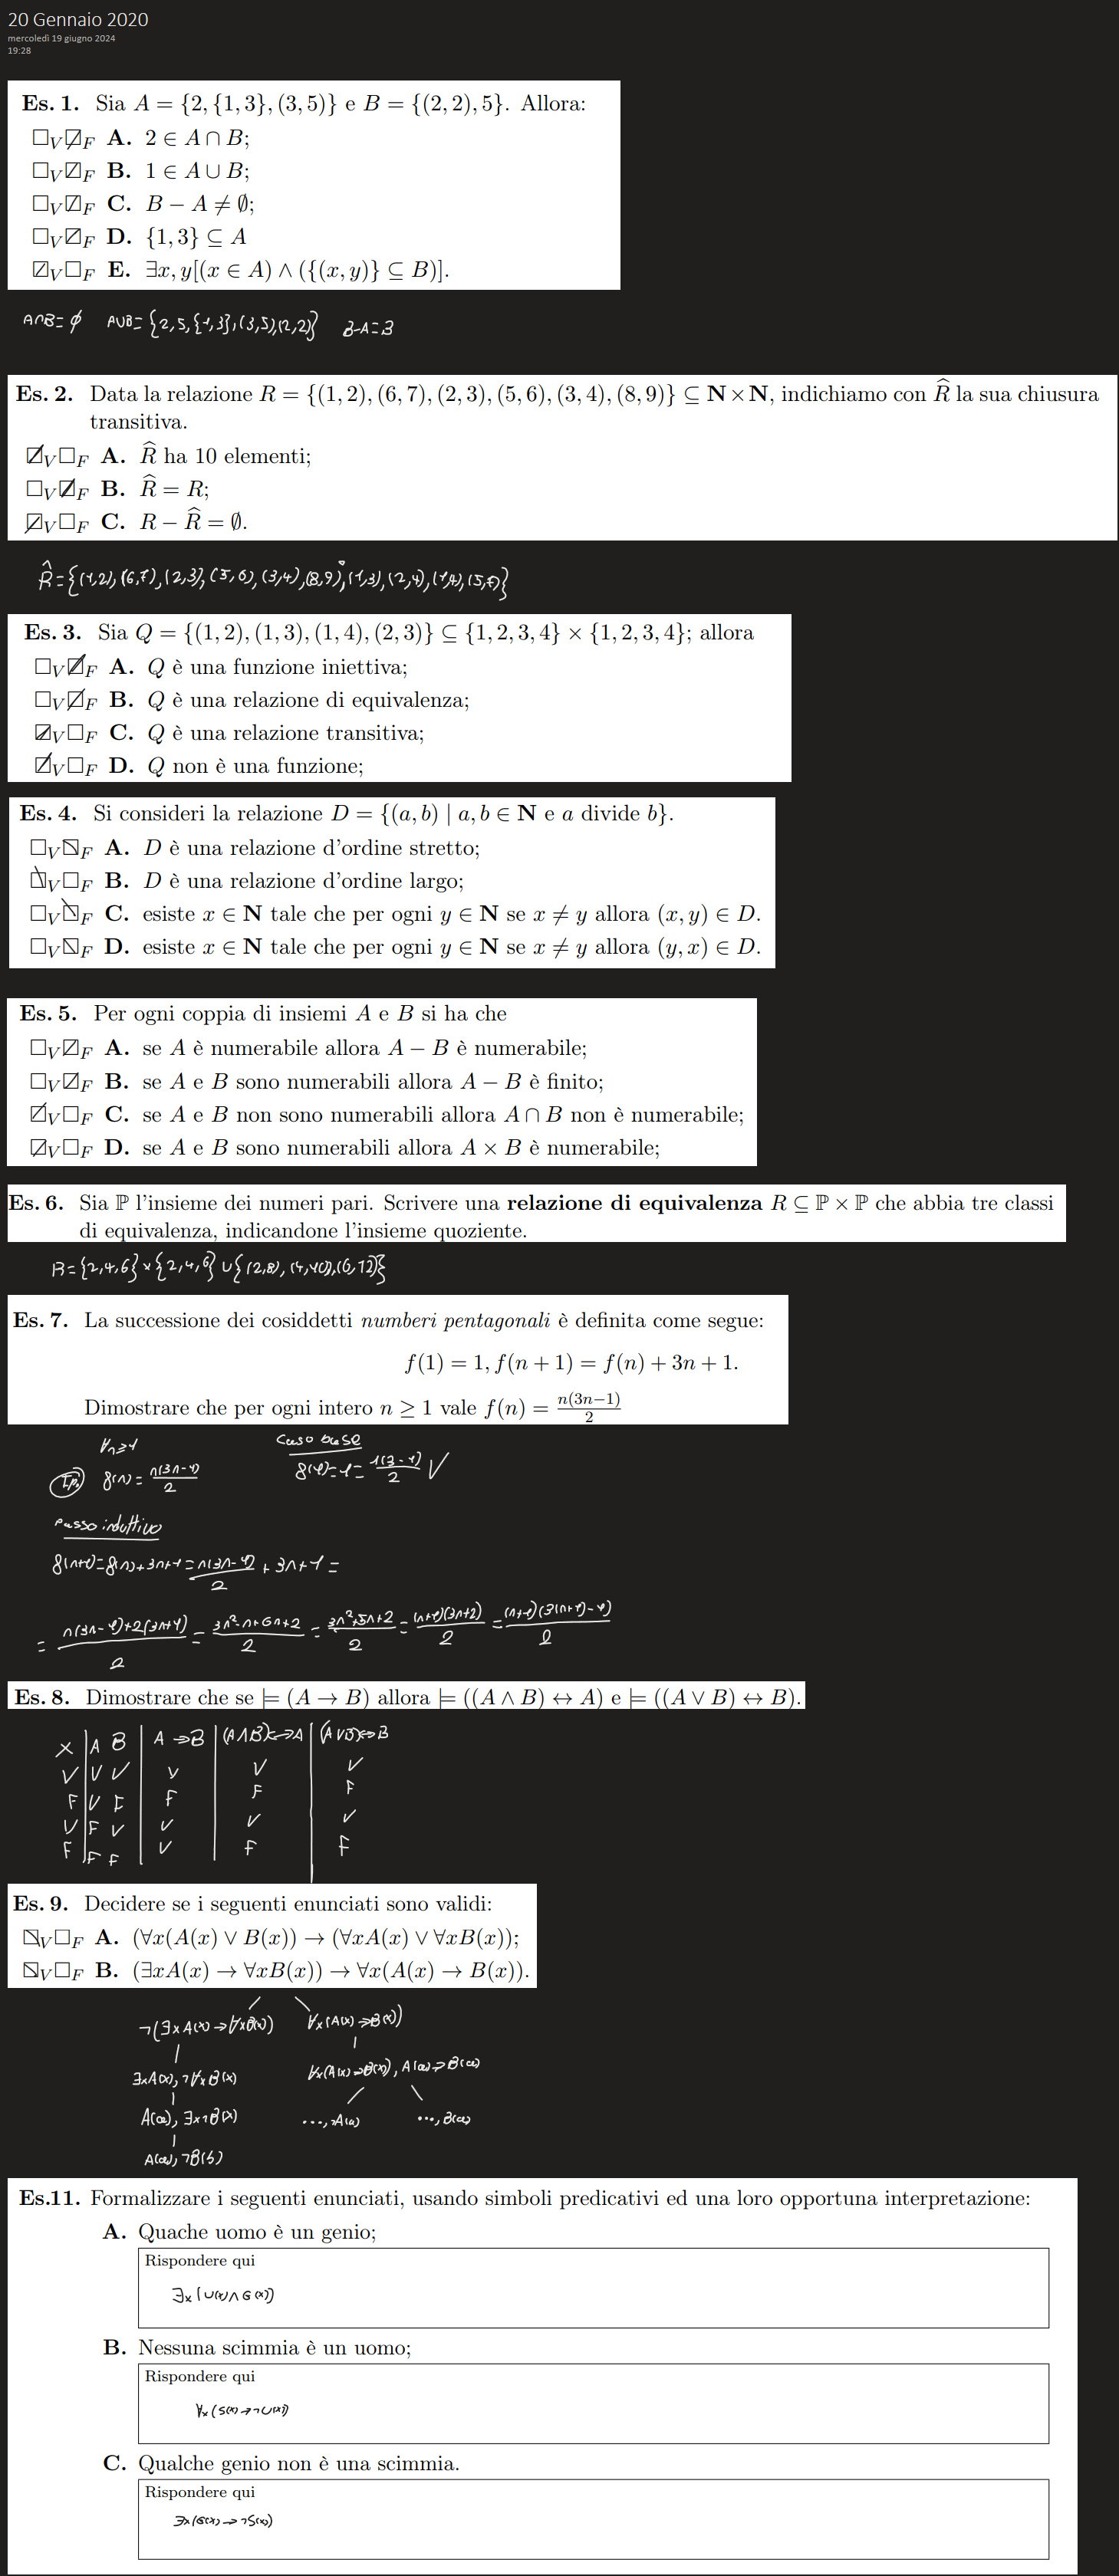 20 Gennaio 2020
mercoledì 19 giugno 2024
19:28
Es. 1. Sia A = {2, {1, 3}, (3, 5)} e B = {(2, 2), 5}. Allora:
□V☑F A. 2 ∈ A ∩ B;
□V☑F B. 1 ∈ A ∪ B;
□V☑F C. B − A ≠ ∅;
□V☑F D. {1, 3} ⊆ A
☑V□F E. ∃x, y[(x ∈ A) ∧ ({(x, y)} ⊆ B)].
A∩B = ∅ A∪B = {2, 5, {1, 3}, (3, 5), (2, 2)} B-A = B
Es. 2. Data la relazione R = {(1, 2), (6, 7), (2, 3), (5, 6), (3, 4), (8, 9)} ⊆ N × N, indichiamo con R̂ la sua chiusura
transitiva.
☑V□F A. R̂ ha 10 elementi;
□V☑F B. R̂ = R;
☑V□F C. R − R̂ = ∅.
R̂ = {(1,2), (6,7), (2,3), (5,6), (3,4), (8,9), (1,3), (2,4), (1,4), (5,7)}
Es. 3. Sia Q = {(1, 2), (1, 3), (1, 4), (2, 3)} ⊆ {1, 2, 3, 4} × {1, 2, 3, 4}; allora
□V☑F A. Q è una funzione iniettiva;
□V☑F B. Q è una relazione di equivalenza;
☑V□F C. Q è una relazione transitiva;
☑V□F D. Q non è una funzione;
Es. 4. Si consideri la relazione D = {(a, b) | a, b ∈ N e a divide b}.
□V☑F A. D è una relazione d'ordine stretto;
☑V□F B. D è una relazione d'ordine largo;
□V☑F C. esiste x ∈ N tale che per ogni y ∈ N se x ≠ y allora (x, y) ∈ D.
□V☑F D. esiste x ∈ N tale che per ogni y ∈ N se x ≠ y allora (y, x) ∈ D.
Es. 5. Per ogni coppia di insiemi A e B si ha che
□V☑F A. se A è numerabile allora A − B è numerabile;
□V☑F B. se A e B sono numerabili allora A − B è finito;
☑V□F C. se A e B non sono numerabili allora A ∩ B non è numerabile;
☑V□F D. se A e B sono numerabili allora A × B è numerabile;
Es. 6. Sia ℙ l'insieme dei numeri pari. Scrivere una relazione di equivalenza R ⊆ ℙ × ℙ che abbia tre classi
di equivalenza, indicandone l'insieme quoziente.
R = {2,4,6} × {2,4,6} ∪ {(2,8), (4,10), (6,12)}
Es. 7. La successione dei cosiddetti numberi pentagonali è definita come segue:
f(1) = 1, f(n + 1) = f(n) + 3n + 1.
Dimostrare che per ogni intero n ≥ 1 vale f(n) = n(3n−1)/2
∀n≥1 Caso base
Ip. f(n) = n(3n-1)/2 f(1) = 1 = 1(3-1)/2 V
Passo induttivo
f(n+1) = f(n) + 3n+1 = n(3n-1)/2 + 3n+1 =
= n(3n-1)+2(3n+1)/2 = 3n²-n+6n+2/2 = 3n²+5n+2/2 = (n+1)(3n+2)/2 = (n+1)(3(n+1)-1)/2
Es. 8. Dimostrare che se ⊨ (A → B) allora ⊨ ((A ∧ B) ↔ A) e ⊨ ((A ∨ B) ↔ B).
X A B A→B (A∧B)↔A (A∨B)↔B
V V V V V V
F V F F F F
V F V V V V
F F F V F F
Es. 9. Decidere se i seguenti enunciati sono validi:
☑V□F A. (∀x(A(x) ∨ B(x)) → (∀xA(x) ∨ ∀xB(x));
☑V□F B. (∃xA(x) → ∀xB(x)) → ∀x(A(x) → B(x)).
¬(∃xA(x)→∀xB(x)) ∀x(A(x)→B(x))
∃xA(x), ¬∀xB(x) ∀x(A(x)→B(x)), A(a)→B(a)
A(a), ∃x¬B(x) ..., ¬A(a) ..., B(a)
A(a), ¬B(b)
Es.11. Formalizzare i seguenti enunciati, usando simboli predicativi ed una loro opportuna interpretazione:
A. Quache uomo è un genio;
Rispondere qui
∃x(U(x)∧G(x))
B. Nessuna scimmia è un uomo;
Rispondere qui
∀x(S(x)→¬U(x))
C. Qualche genio non è una scimmia.
Rispondere qui
∃x(G(x)→¬S(x))